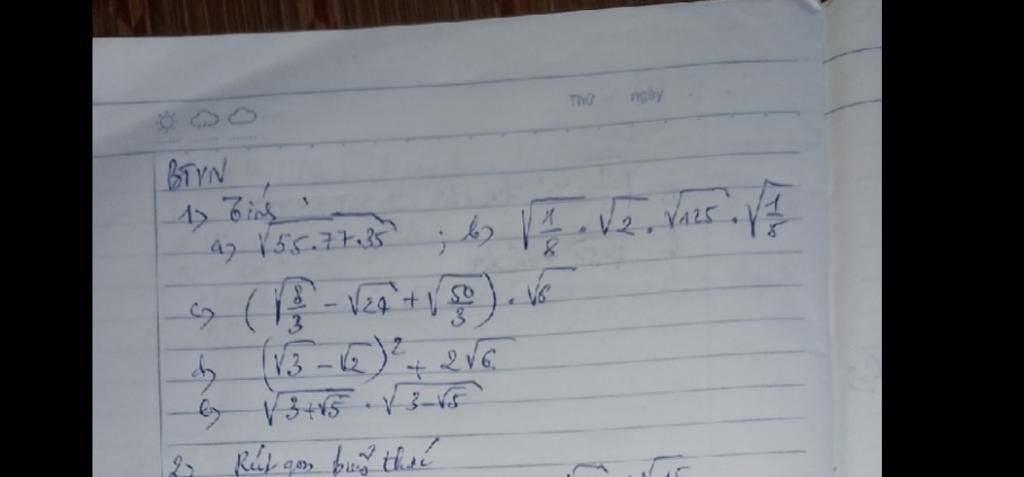 Thứ ngày
BTVN
1) Tính
a) √55.77.35 ; b) √1/8 . √2 . √125 . √1/5
c) (√8/3 - √24 + √50/3) . √6
d) (√3 - √2)² + 2√6
e) √3+√5 . √3-√5
2) Rút gọn biểu thức